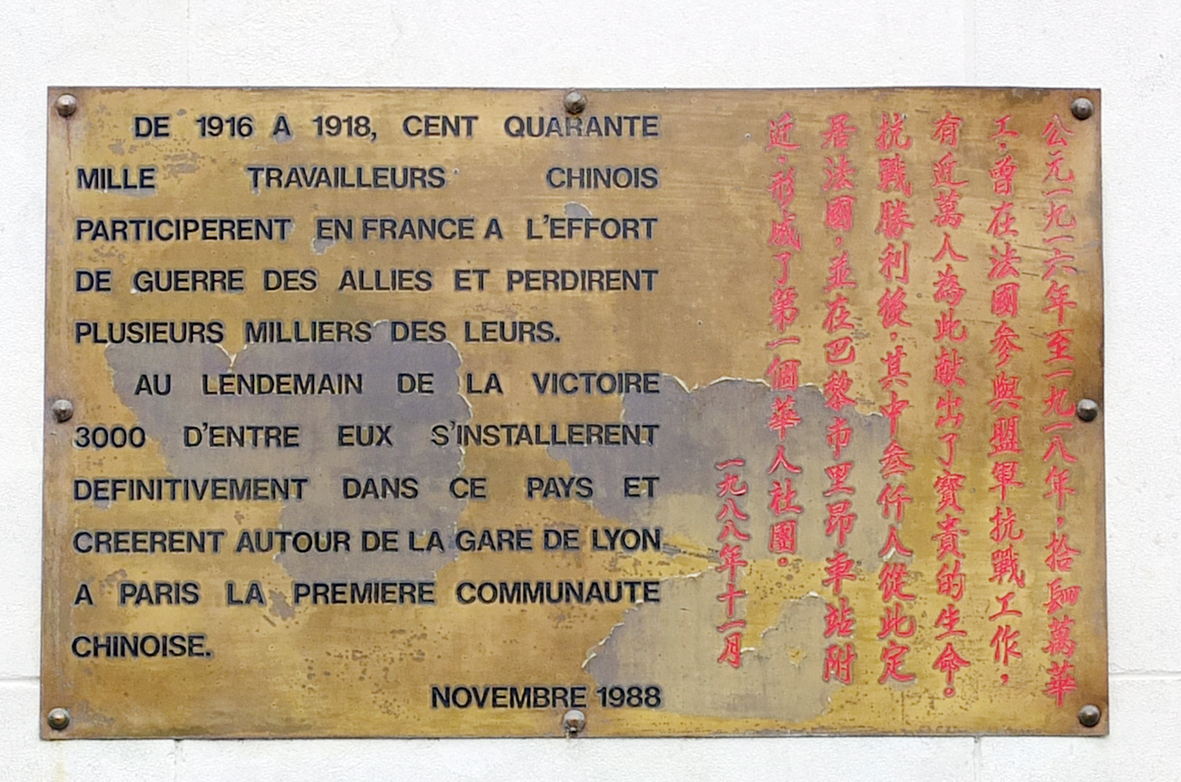 DE 1916 A 1918, CENT QUARANTE
MILLE TRAVAILLEURS CHINOIS
PARTICIPERENT EN FRANCE A L'EFFORT
DE GUERRE DES ALLIES ET PERDIRENT
PLUSIEURS MILLIERS DES LEURS.
AU LENDEMAIN DE LA VICTOIRE
3000 D'ENTRE EUX S'INSTALLERENT
DEFINITIVEMENT DANS CE PAYS ET
CREERENT AUTOUR DE LA GARE DE LYON
A PARIS LA PREMIERE COMMUNAUTE
CHINOISE.
NOVEMBRE 1988
公元一九一六年至一九一八年，拾肆萬華
工，曾在法國參與盟軍抗戰工作，
有近萬人為此献出了寶貴的生命。
抗戰勝利後，其中叁仟人從此定
居法國，並在巴黎市里昂車站附
近，形成了第一個華人社團。
一九八八年十一月